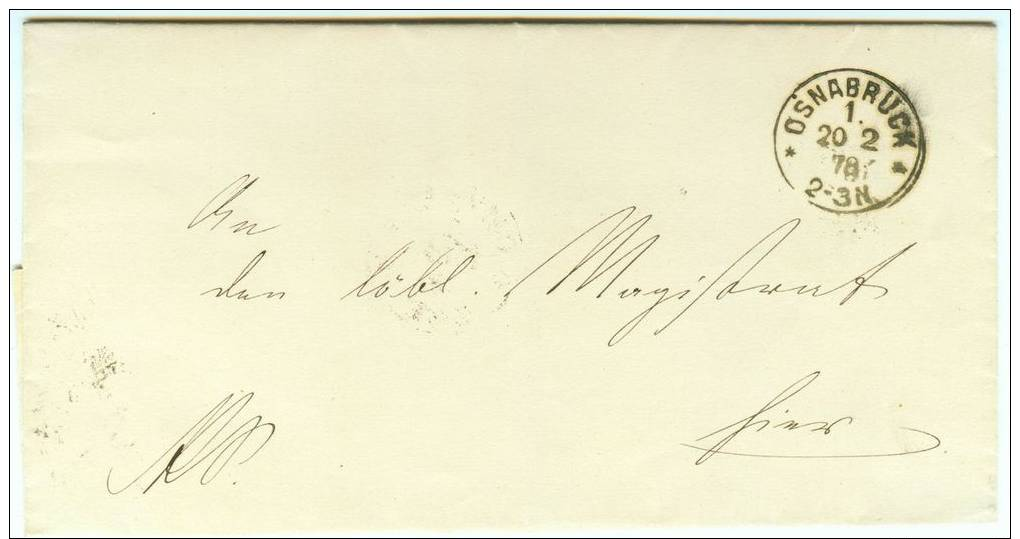 * OSNABRÜCK *
1.
20 2
78
2-3N.
An
den löbl. Magistrat
hier